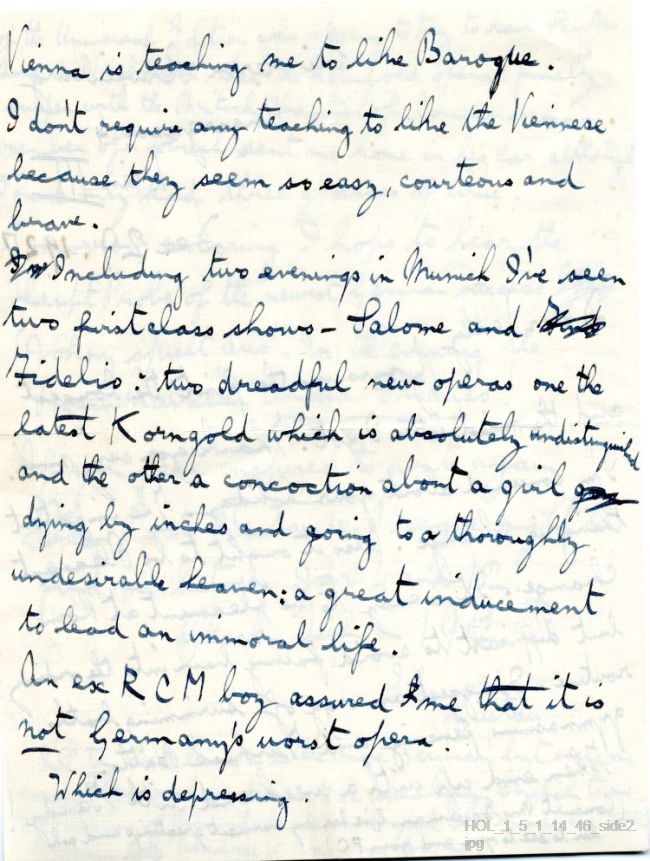 Vienna is teaching me to like Baroque.
I don't require any teaching to like the Viennese
because they seem so easy, courteous and
brave.
Including two evenings in Munich I've seen
two firstclass shows – Salome and
Fidelio : two dreadful new operas one the
latest Korngold which is absolutely undistinguished
and the other a concoction about a girl
dying by inches and going to a thoroughly
undesirable heaven: a great inducement
to lead an immoral life.
An ex R C M boy assured me that it is
not Germany's worst opera.
Which is depressing.
HOL_1_5_1_14_46_side2.
jpg